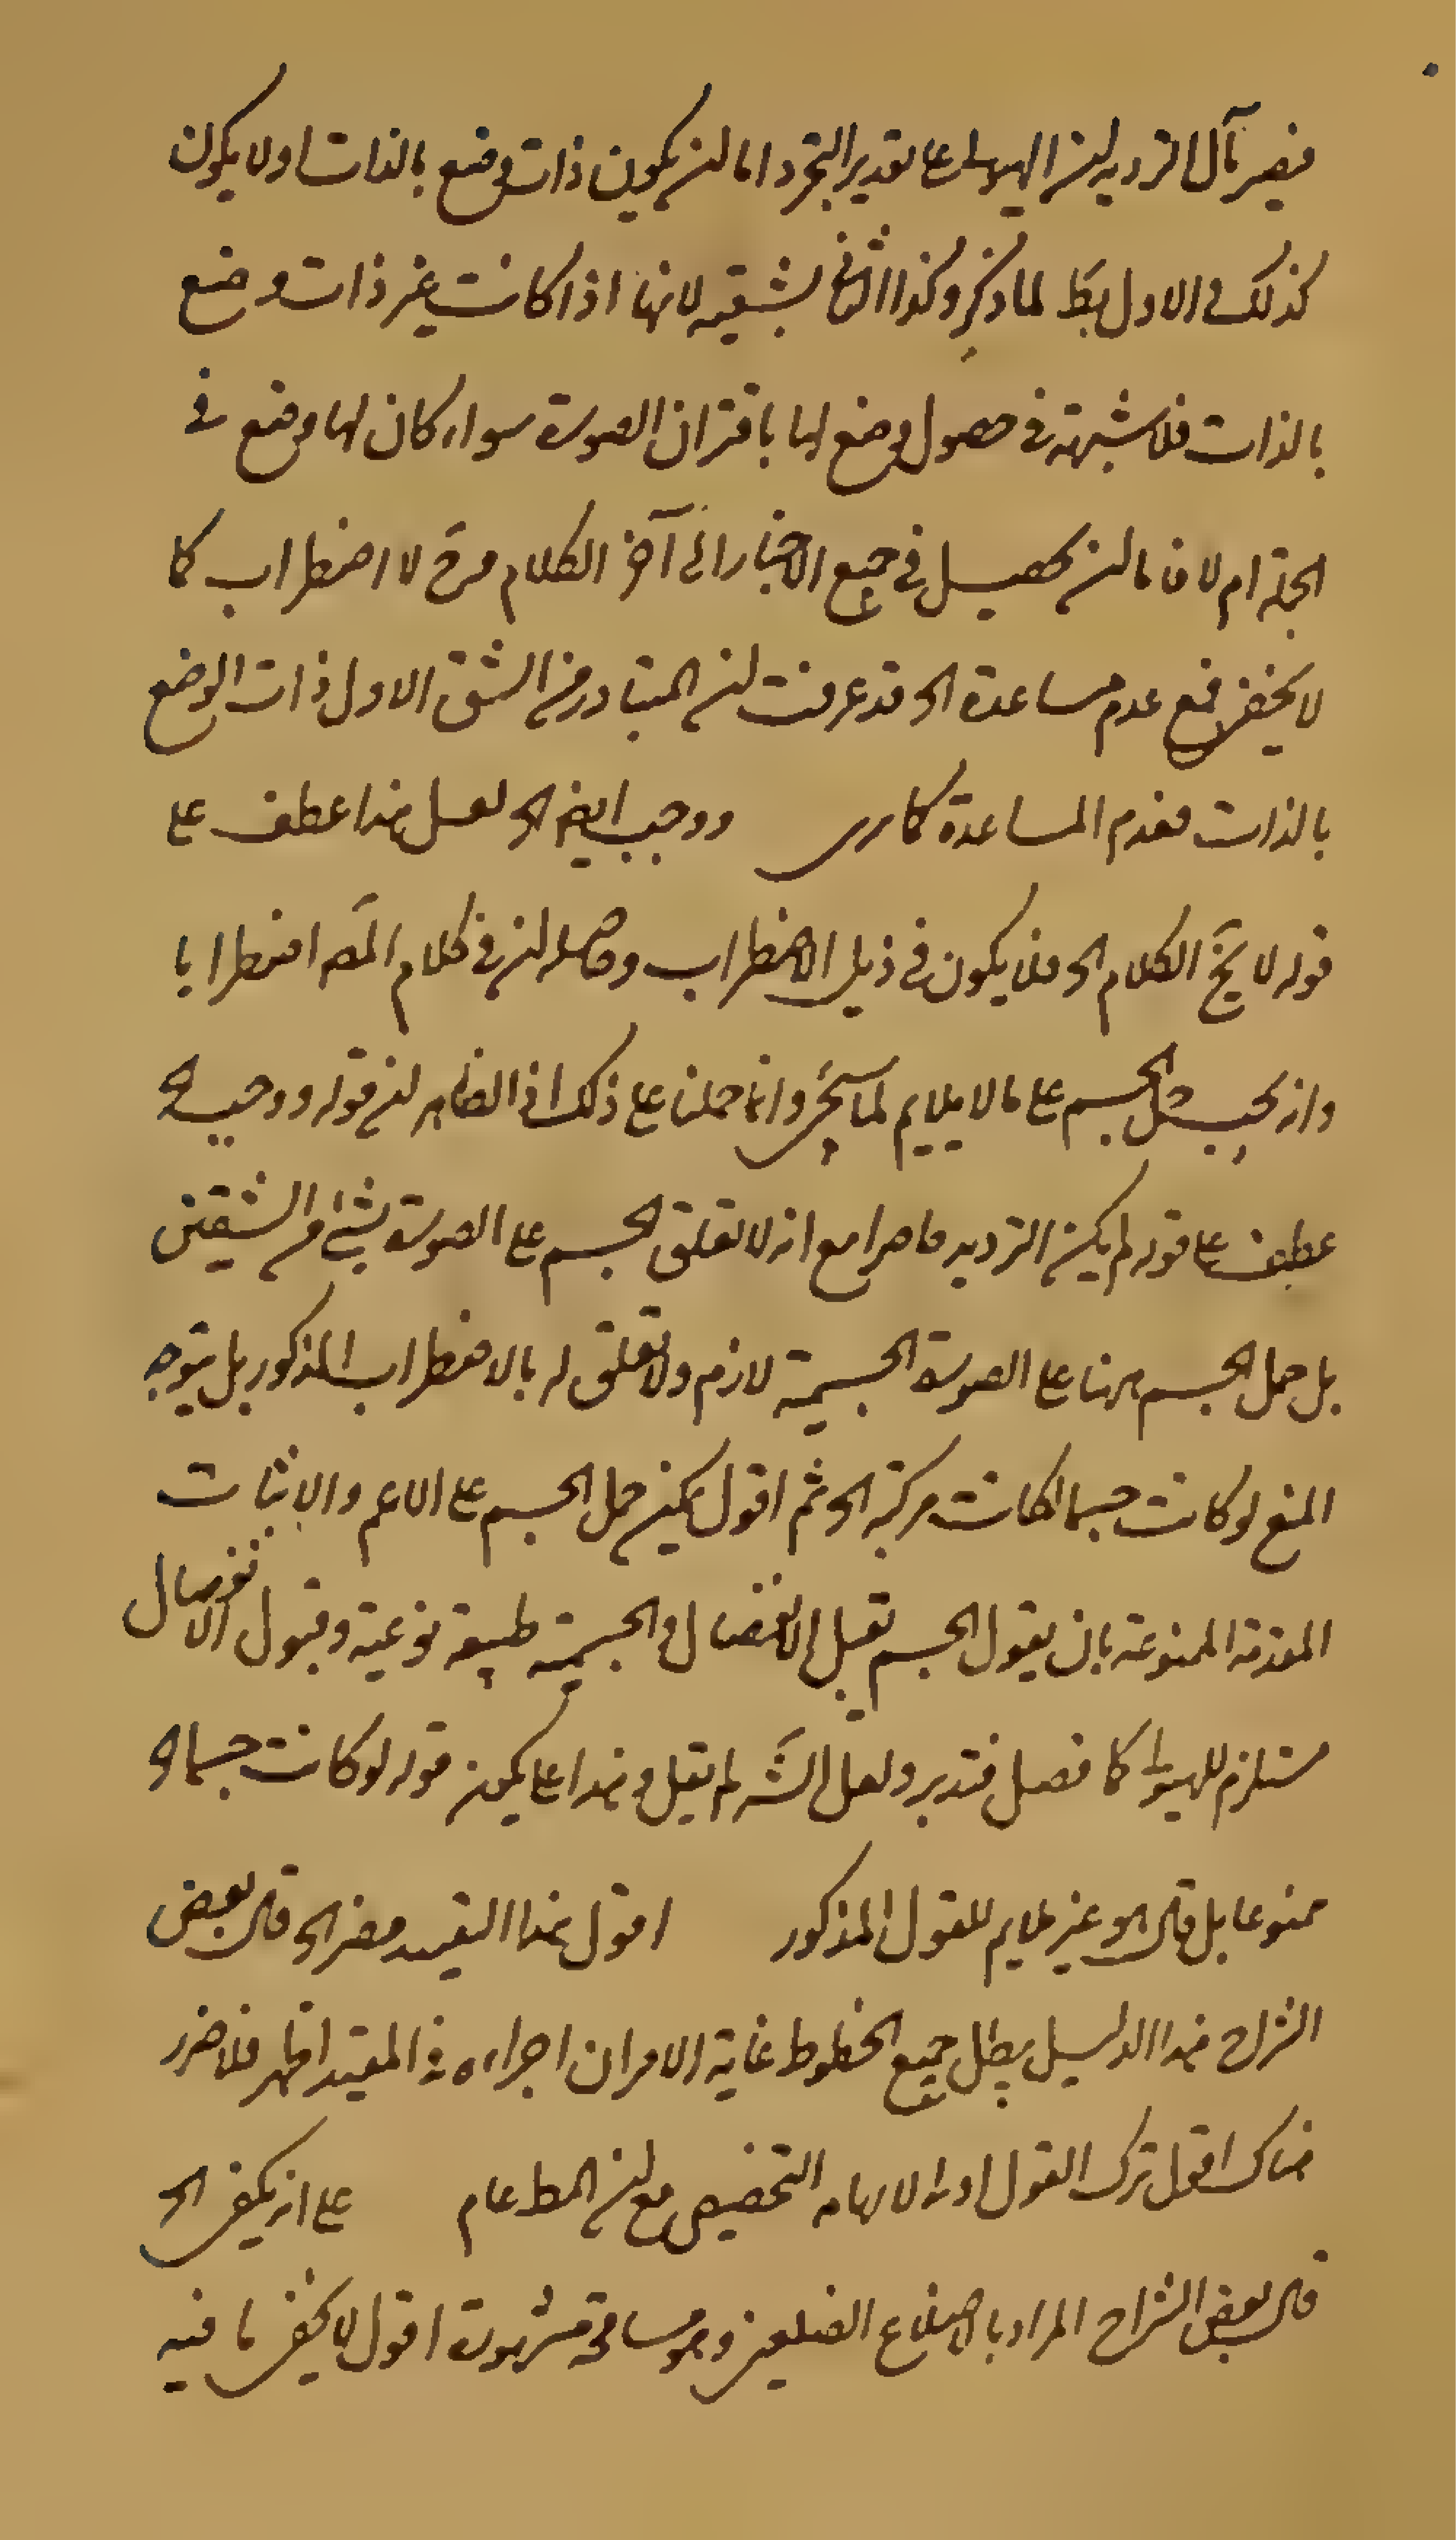 فيصير مآل الترديد ان الهيولى على تقدير التجرد اما ان يكون ذات وضع بالذات او لا يكون
كذلك والاول بط لما ذكر وكذا الثاني بشقيه لانها اذا كانت غير ذات وضع
بالذات فلا شبهة في حصول وضع لها باقتران الصورة سواء كان لها وضع في
الجملة ام لا فاما ان يحصل في جميع الاحياز الى آخر الكلام فح لا اضطراب كما
لا يخفى فمع عدم مساعدة الخ قد عرفت ان المتبادر من الشق الاول ذات الوضع
بالذات فعدم المساعدة كما ترى ووجب ايضا الخ لعل هذا عطف على
قوله لا يخ الكلام الخ فلا يكون في ذيل الاضطراب وحاصله ان في كلام المص اضطرابا
وانه يجب حمل الجسم على ما لا يلايم لما سيجئ وانما حملنا على ذلك اذ الظاهر ان قوله ووجب الخ
عطف على قوله لم يكن الترديد حاصرا مع انه لا تعلق لحمل الجسم على الصورة بشئ من الشقين
بل حمل الجسم ههنا على الصورة الجسمية لازم ولا تعلق له بالاضطراب المذكور بل يتوجه
المنع لو كانت جسما لكانت مركبة الخ ثم اقول يمكن حمل الجسم على الاعم والاثبات
المقدمة الممنوعة بان يقول الجسم يقبل الانفصال والجسمية طبيعة نوعية وقبول الانفصال
مستلزم للهيولى كما فصل فتدبر ولعل الش لم يقل وهذا على يكون قوله لو كانت جسما الخ
ممنوعا بل قال هو غير ملايم للقول المذكور اقول هذا التقييد مضر الخ قال بعض
الشراح هذا الدليل يبطل جميع الخطوط غاية الامر ان اجراءه في المقيد اظهر فلا ضرر
هناك اقول ترك القول اولى لايهامه التخصيص مع ان المط عام على انه يكفي الخ
قال بعض الشراح المراد بالاضلاع الضلعين وهو مسامحة مشهورة اقول لا يخفى ما فيه